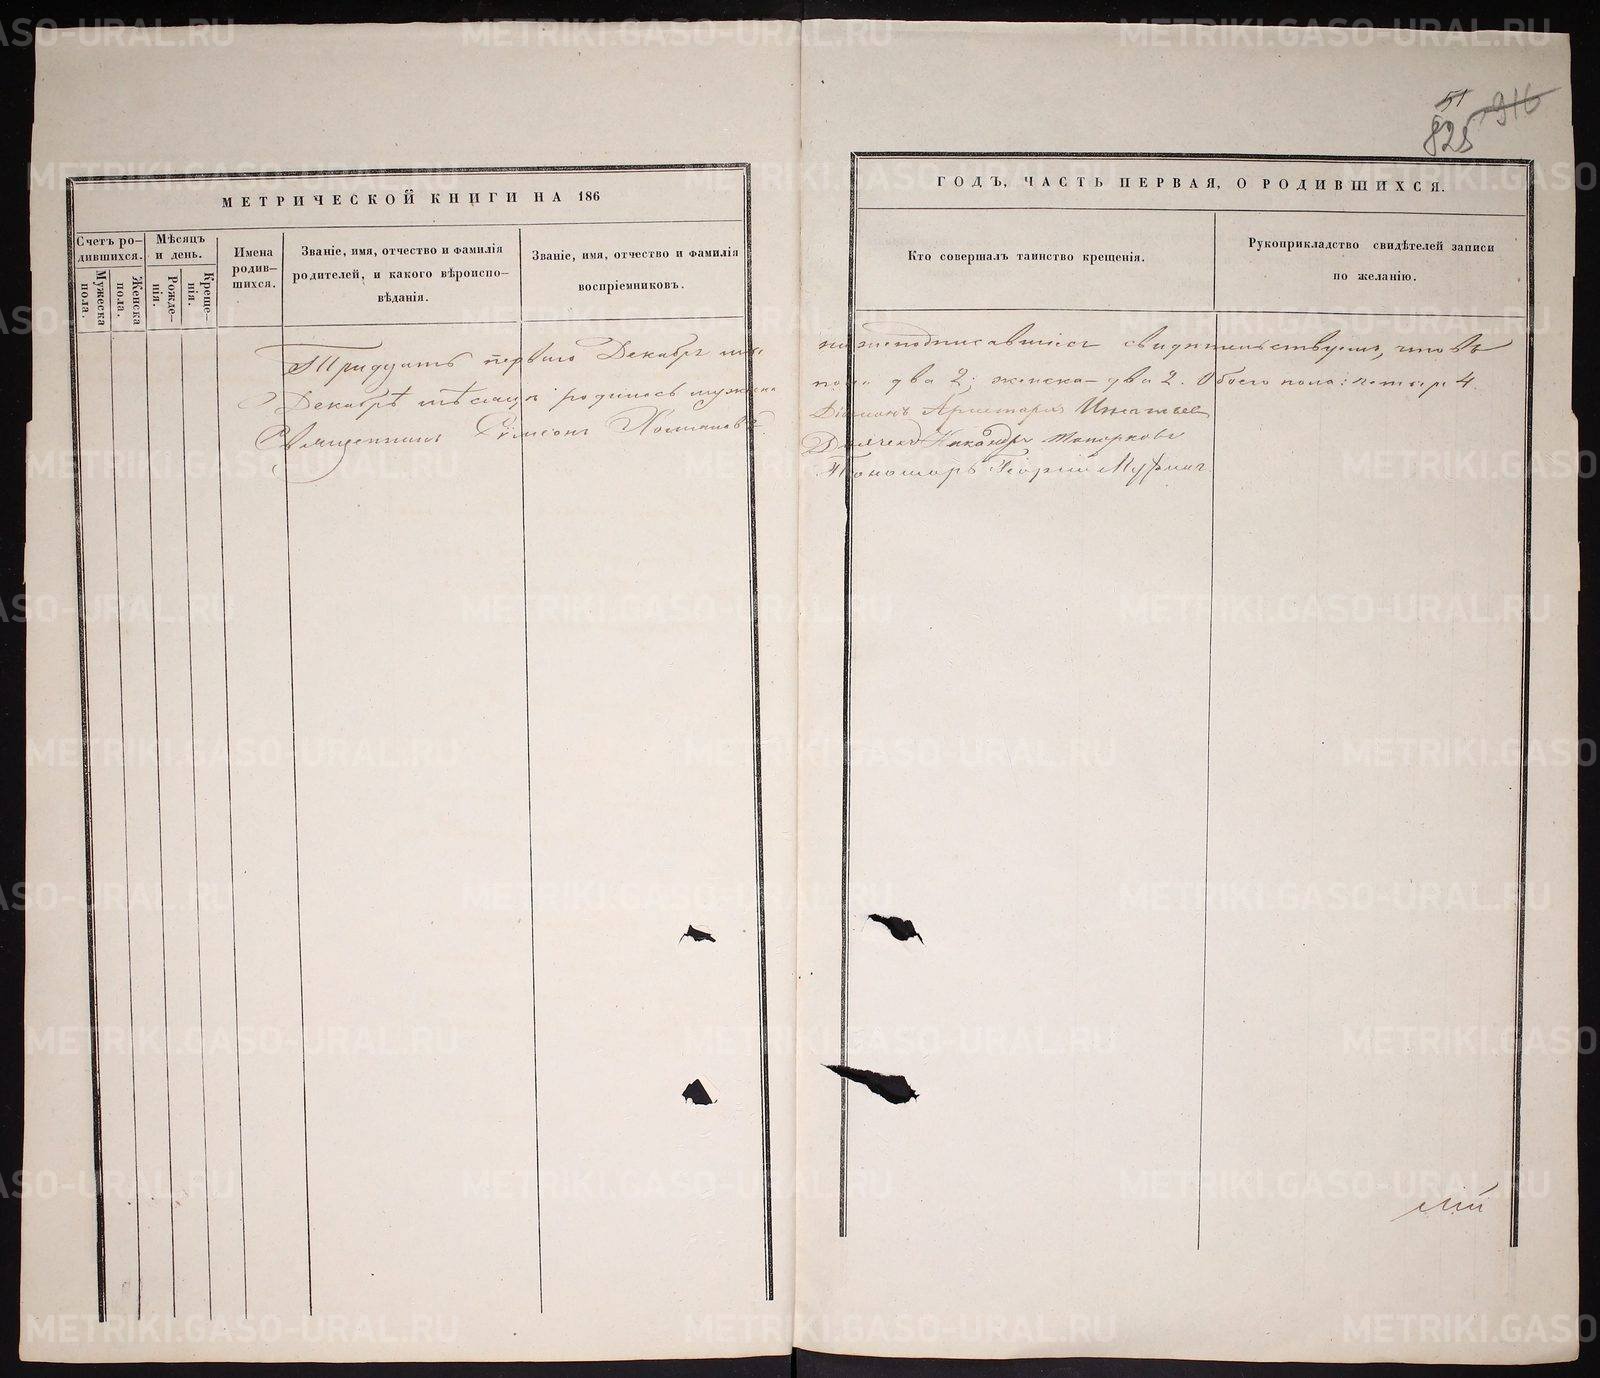 51
825 916
МЕТРИЧЕСКОЙ КНИГИ НА 186
ГОДЪ, ЧАСТЬ ПЕРВАЯ, О РОДИВШИХСЯ.
Счетъ ро-
дившихся.
Мужеска
пола.
Женска
пола.
Мѣсяцъ
и день.
Рожде-
нія.
Креще-
нія.
Имена
родив-
шихся.
Званіе, имя, отчество и фамилія
родителей, и какого вѣроиспо-
вѣданія.
Званіе, имя, отчество и фамилія
воспріемниковъ.
Кто совершалъ таинство крещенія.
Рукоприкладство свидѣтелей записи
по желанію.
Тридцать перваго Декабря мы нижеподписавшіеся свидѣтельствуемъ, что въ
Декабрѣ мѣсяцѣ родилось мужеска пола два 2; женска два 2. Обоего пола: четыре 4.
Священникъ Симеонъ
Діаконъ Аристархъ Игнатьев
Дьячекъ Никандръ Топорковъ
Пономарь Георгій
METRIKI.GASO-URAL.RU